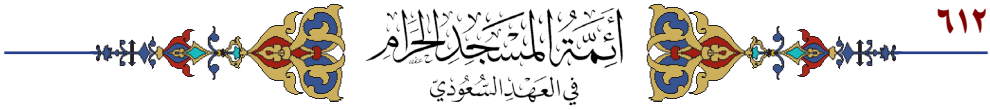 ٦١٢
أَئِمَّةُ المَسْجِدِ الحَرَامِ
في العَهْدِ السُّعُودِيّ